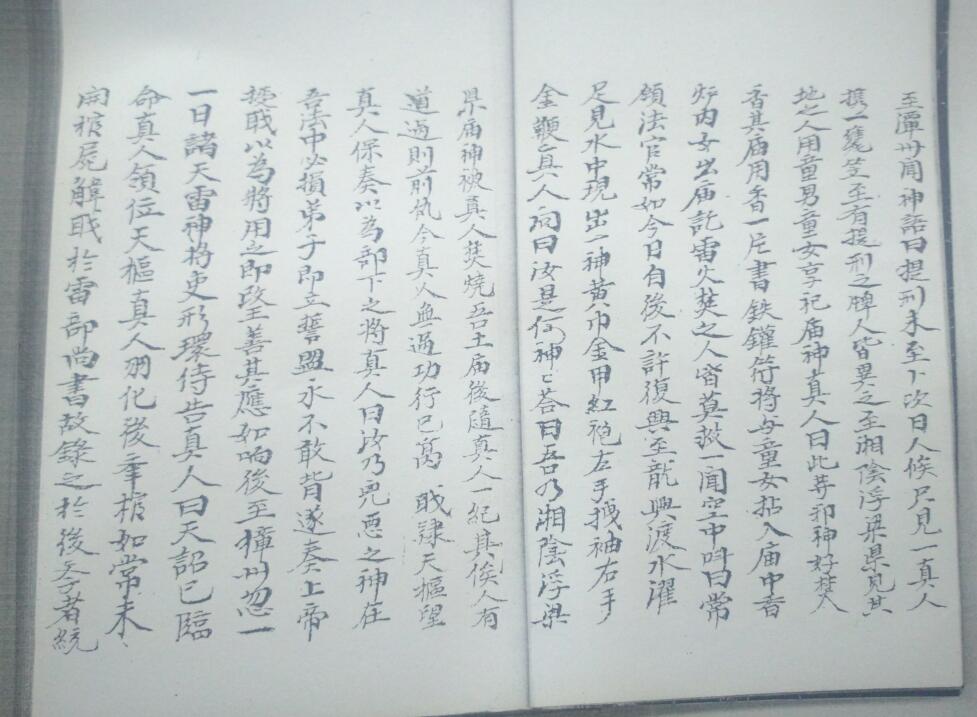 至潭州閗神語曰提刑未至下次日人候只見一真人
携一甕笠至有提刑之牌人皆異之至湘陰浮梁県見其
地之人用童男童女享祀庙神真人曰此等邪神好損人
香其庙用香一片書鉄鑵符将与童女拈入庙中香
炉内女出庙訖雷火焚之人皆莫救一闻空中呌曰常
領法官常如今日自後不許復興至龍興渡水濯
足見水中現出一神黄巾金甲紅袍左手拽袖右手
金鞭真人问曰汝是何神〻荅曰吾乃湘陰浮梁
県庙神被真人焚燒吾土庙後隨真人一紀其俟人有
道過則前仇今真人無過功行已萬 戝隷天樞望
真人保奏以為部下之将真人曰汝乃兇恶之神在
吾法中必損弟子即立誓盟永不敢背遂奏上帝
授戝以為将用之即改王善其應如响後至撞州忽一
一日諸天雷神将吏形環侍告真人曰天詔已臨
命真人領位天樞真人羽化後舉棺如常未
開棺屍觧戝於雷部尚書故錄之於後学者統